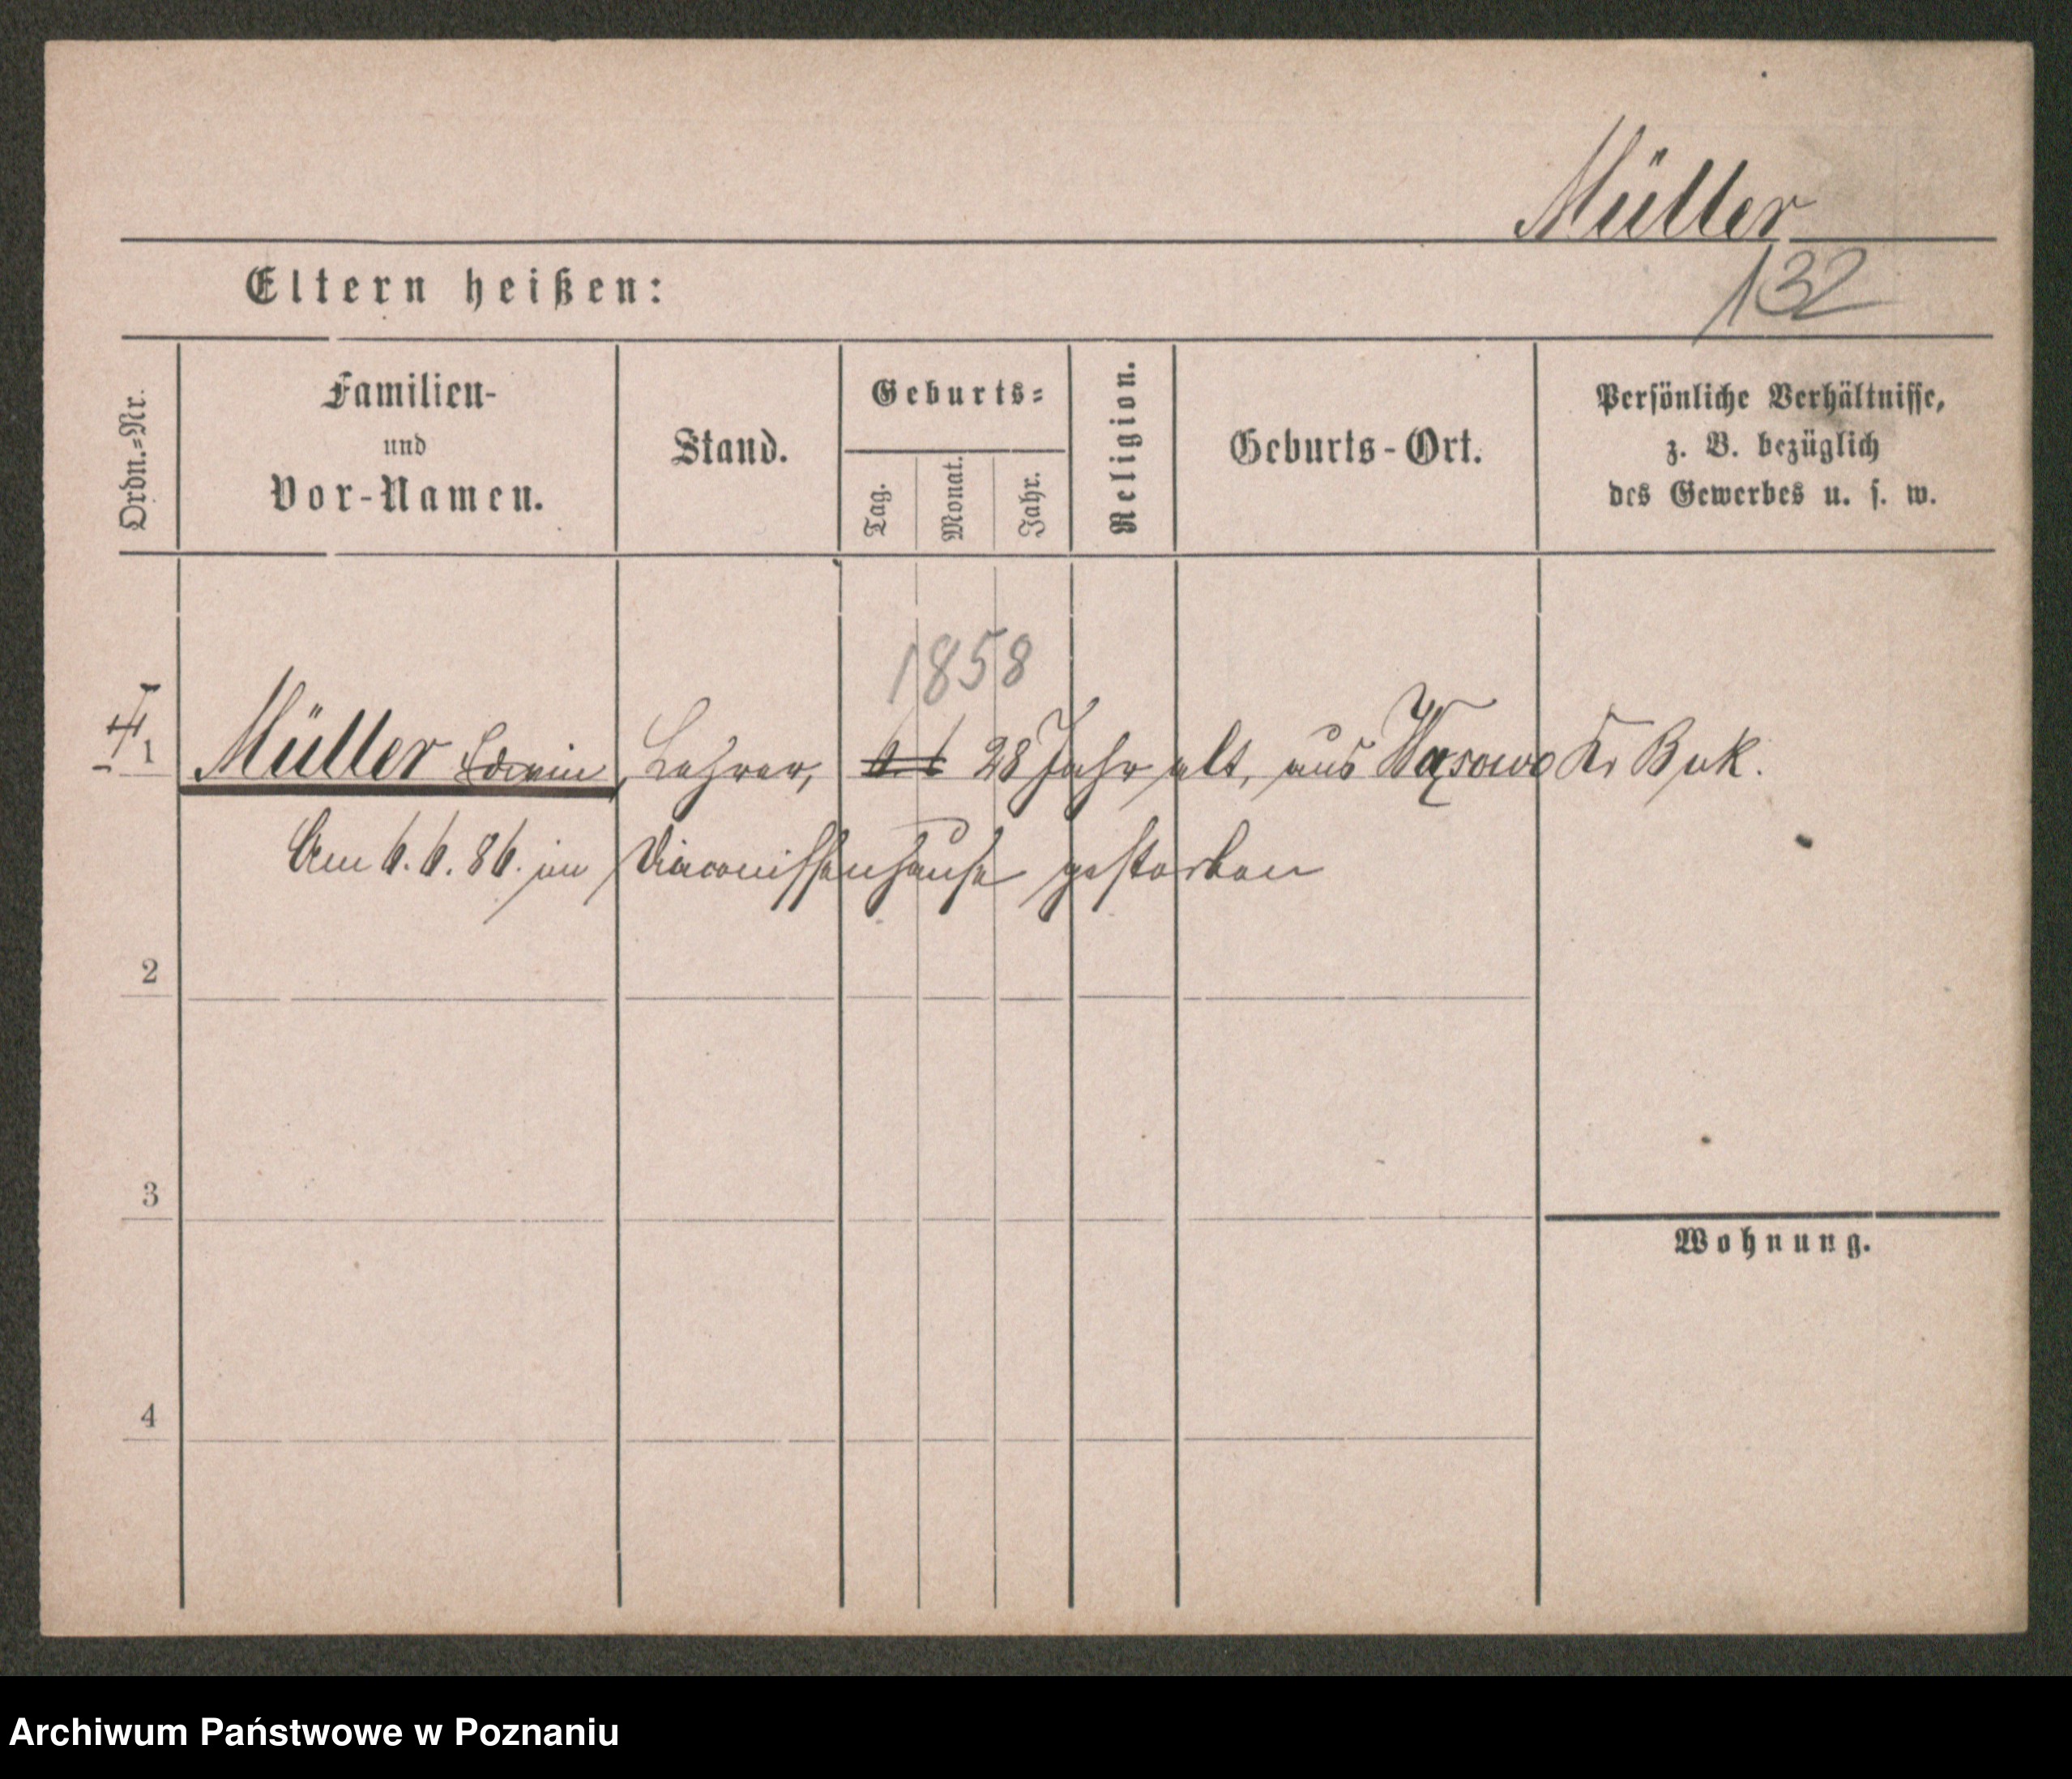 Müller
Eltern heißen:
132
Ordn.=Nr.
Familien-
und
Vor-Namen.
Stand.
Geburts=
Tag.
Monat.
Jahr.
Religion.
Geburts-Ort.
Persönliche Verhältnisse,
z. B. bezüglich
des Gewerbes u. s. w.
1858
1 Müller Edwin, Lehrer, 6 6 28 Jahr alt, aus Wąsowo Kr Buk.
Am 6. 6. 86. im Diaconissenhause gestorben
2
3
Wohnung.
4
Archiwum Państwowe w Poznaniu